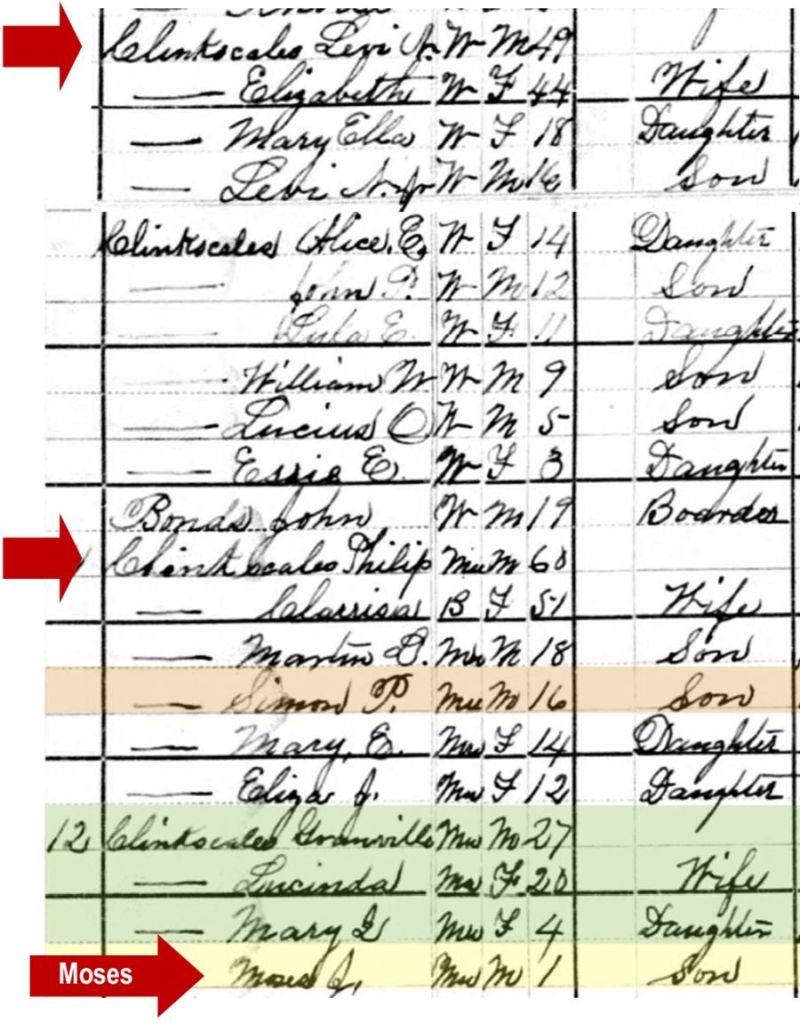 Clinkscales Levi N. W M 49
— Elizabeth W F 44 Wife
— Mary Ella W F 18 Daughter
— Levi N. Jr W M 16 Son
Clinkscales Alice E. W F 14 Daughter
— John P. W M 12 Son
— Lula E. W F 11 Daughter
— William W W M 9 Son
— Lucius O W M 5 Son
— Essie E. W F 3 Daughter
Bonds John W M 19 Boarder
Clinkscales Philip Mu M 60
— Clarrisa B F 51 Wife
— Martin D. Mu M 18 Son
— Simon P. Mu M 16 Son
— Mary, E. Mu F 14 Daughter
— Eliza J. Mu F 12 Daughter
12 Clinkscales Granville Mu M 27
— Lucinda Mu F 20 Wife
— Mary Mu F 4 Daughter
Moses Moses J. Mu M 1 Son